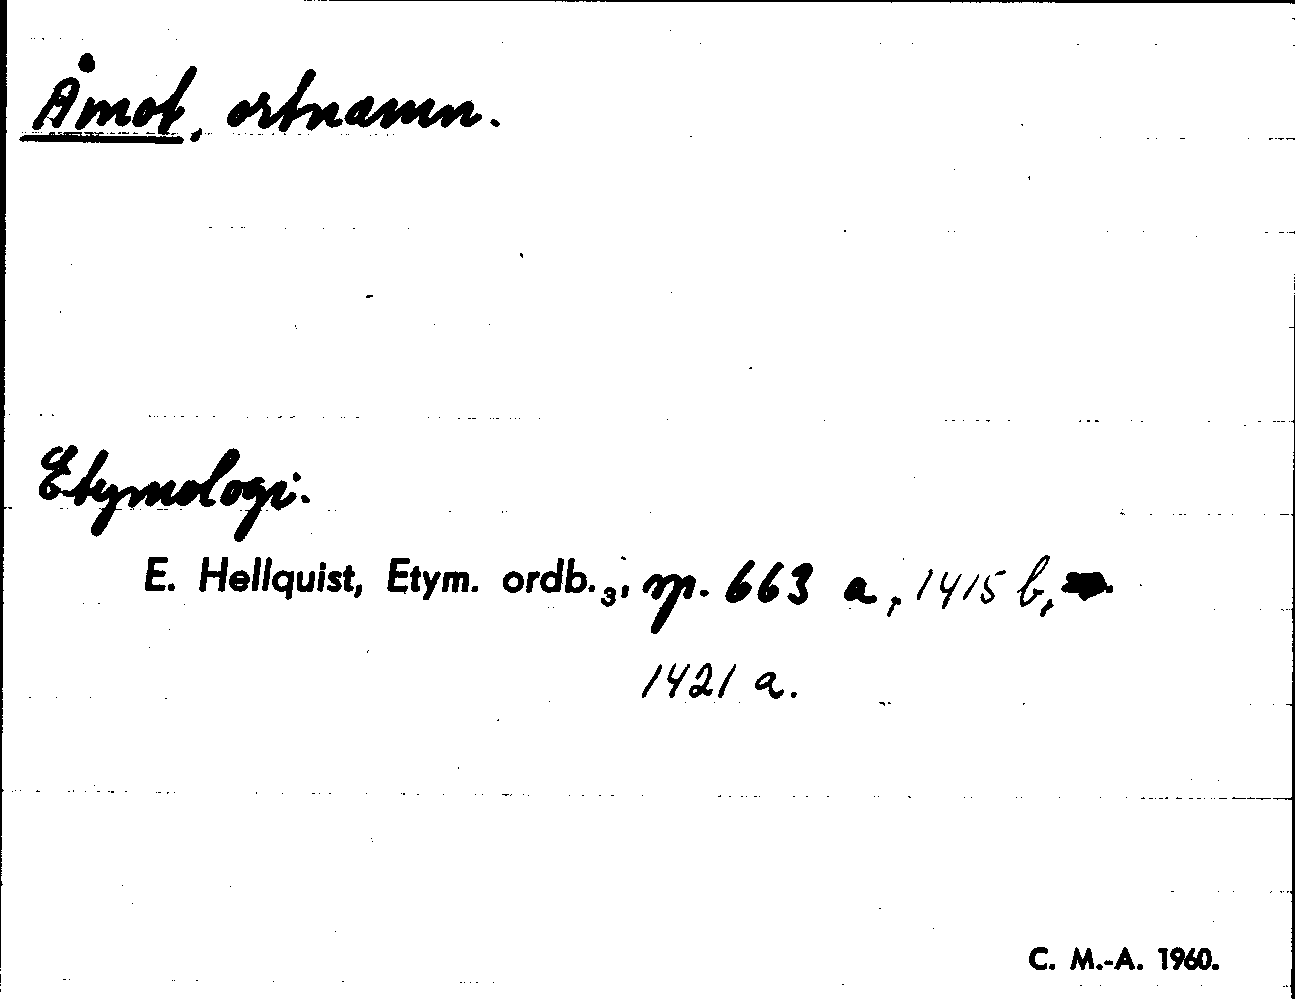 Åmot, ortnamn.
Etymologi.
E. Hellquist, Etym. ordb.₃, sp. 663 a, 1415 b,
1421 a.
C. M.-A. 1960.